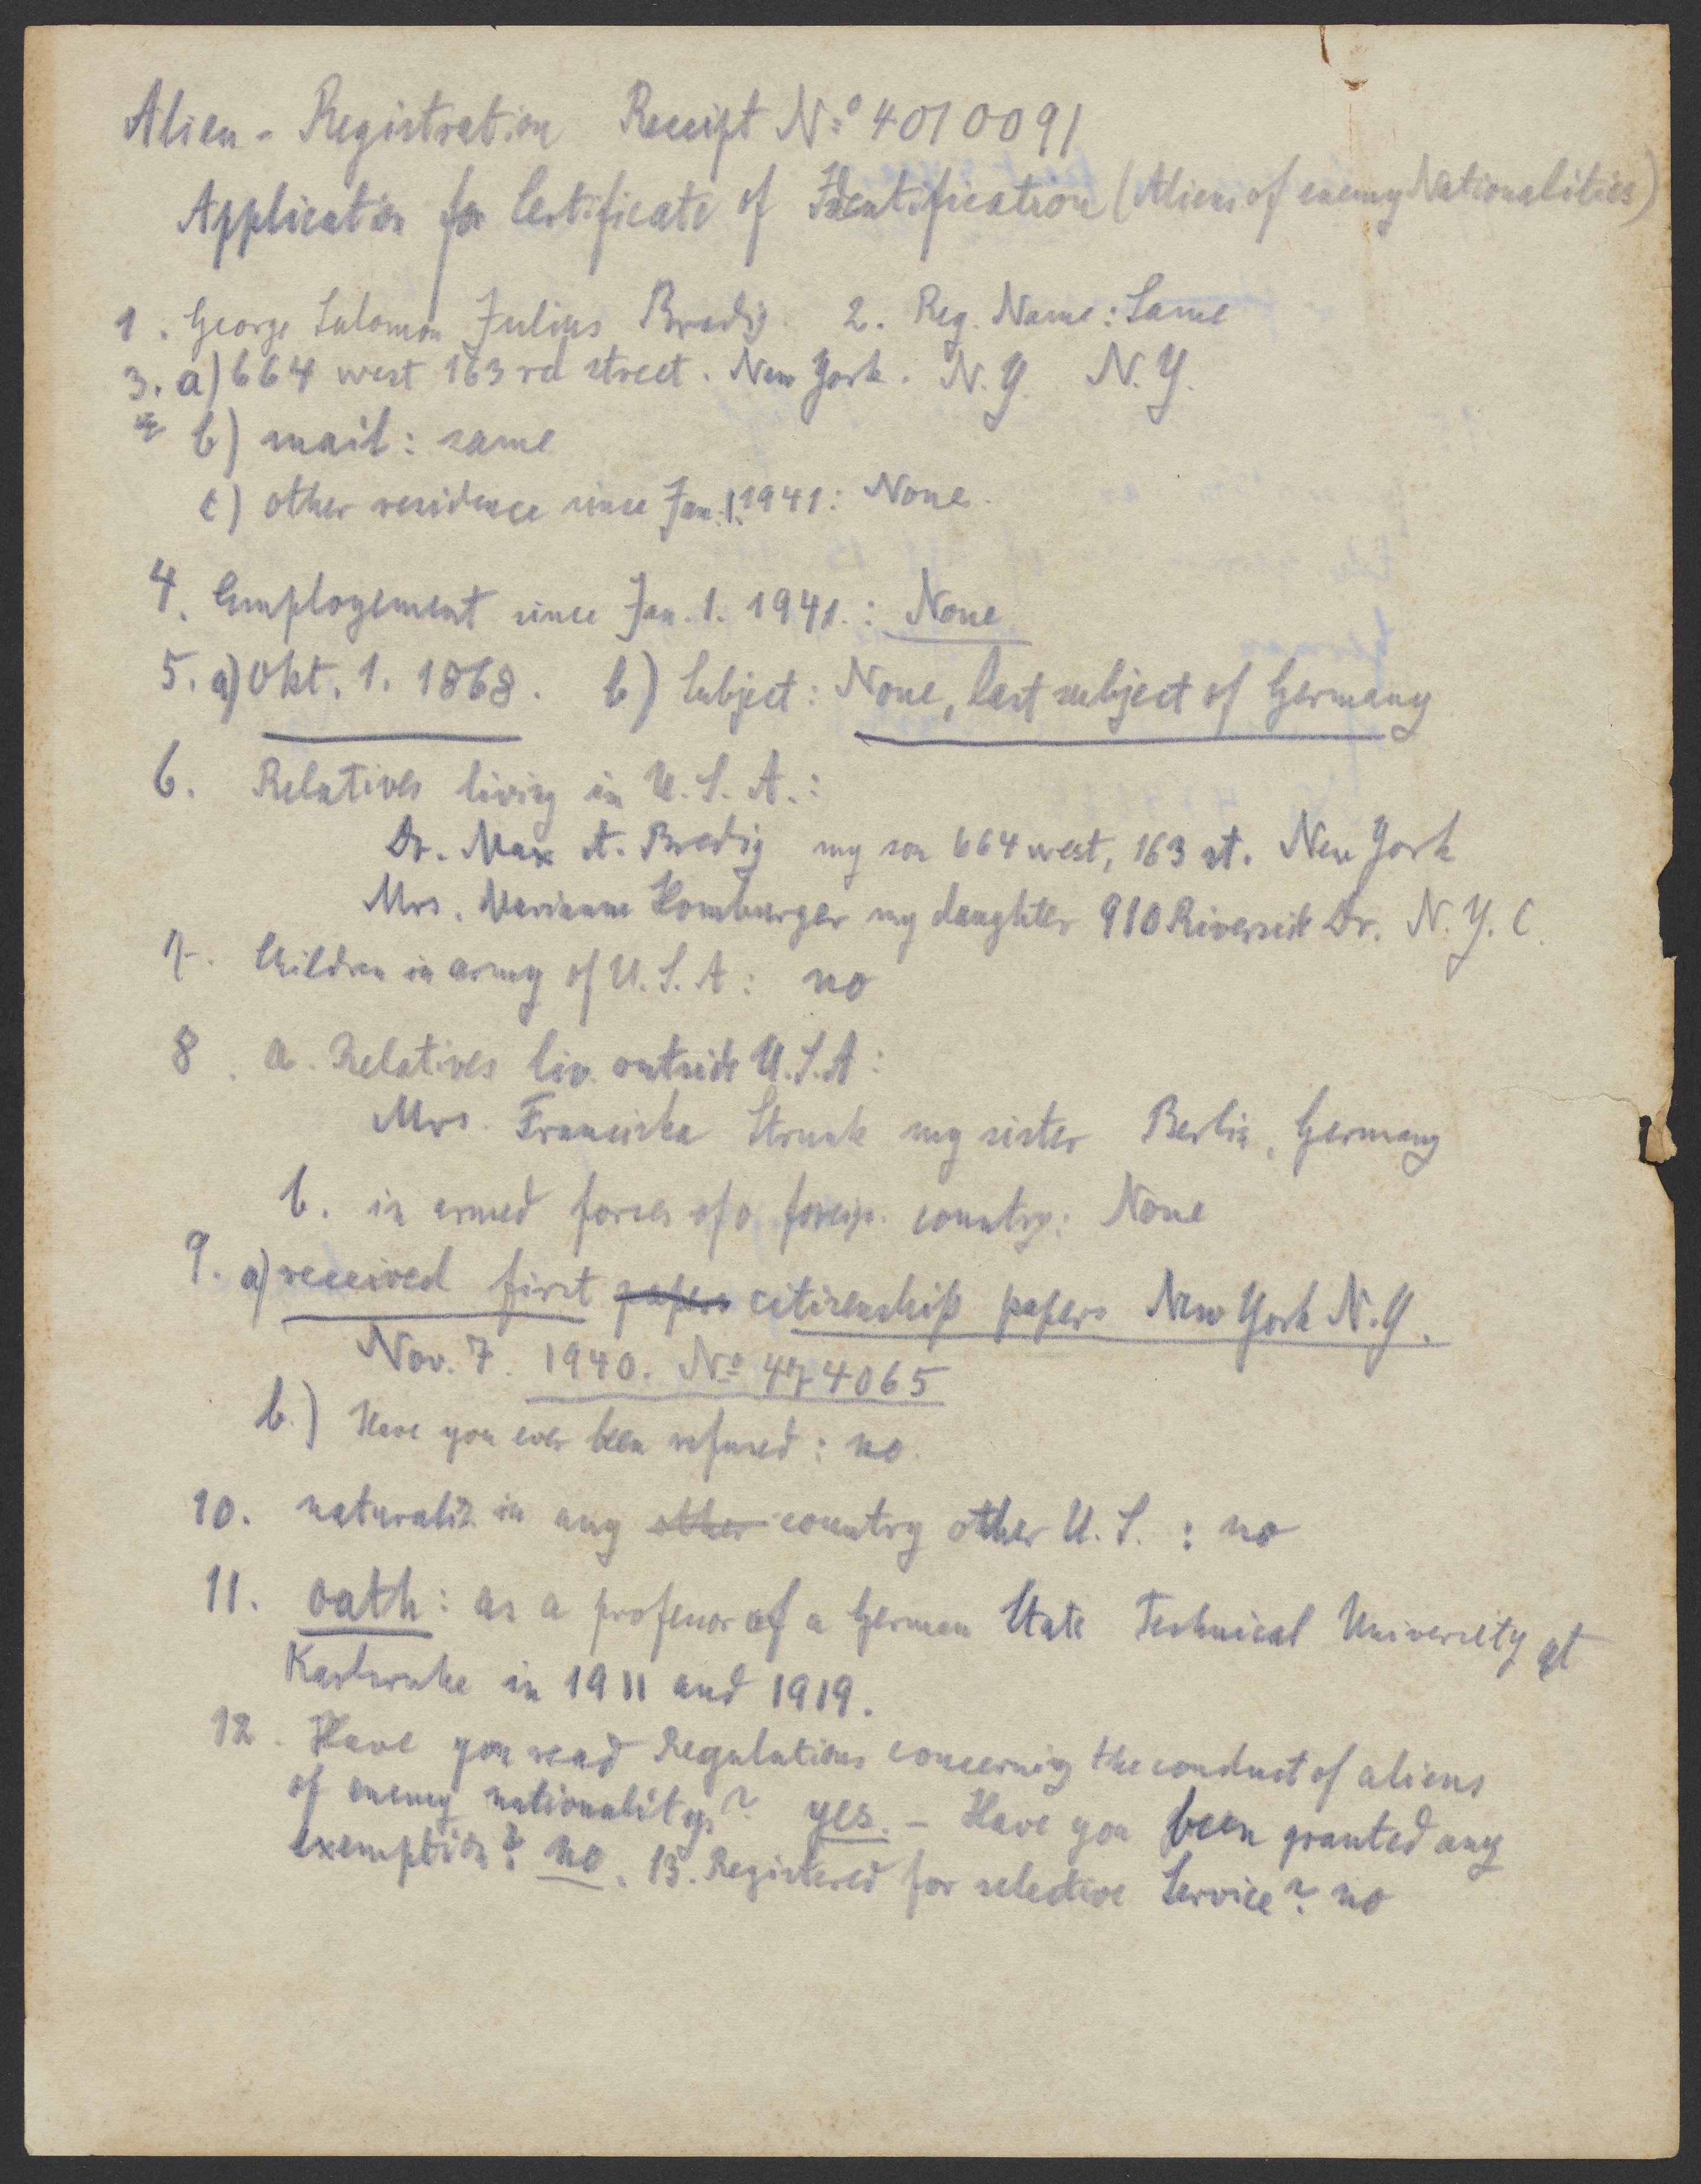 Alien - Registration Receipt Nº 4010091
Application for Certificate of Identification (Aliens of enemy Nationalities)
1. George Salomon Julius Bredig. 2. Reg. Name: Same
3. a) 664 west 163rd street. New York. N.Y. N.Y.
b) mail: same
c) other residence since Jan. 1. 1941: None.
4. Employement since Jan. 1. 1941.: None
5. a) Okt. 1. 1868. b) Subject: None, last subject of Germany
6. Relatives living in U.S.A.:
Dr. Max A. Bredig my son 664 west, 163 st. New York
Mrs. Marianne Homburger my daughter 910 Riverside Dr. N.Y.C.
7. Children in army of U.S.A: no
8. a. Relatives liv. outside U.S.A:
Mrs. Franciska Strunk my sister Berlin, Germany
b. in armed forces of a foreign. country: None
9. a) received first papers citizenship papers New York N.Y.
Nov. 7. 1940. Nº 474065
b.) Have you ever been refused: no.
10. naturaliz in any other country other U.S. : no
11. oath: as a professor of a German State Technical University at
Karlsruhe in 1911 and 1919.
12. Have you read Regulations concerning the conduct of aliens
of enemy nationalitys? yes. - Have you been granted any
exemption? no. 13. Registered for selective Service? no